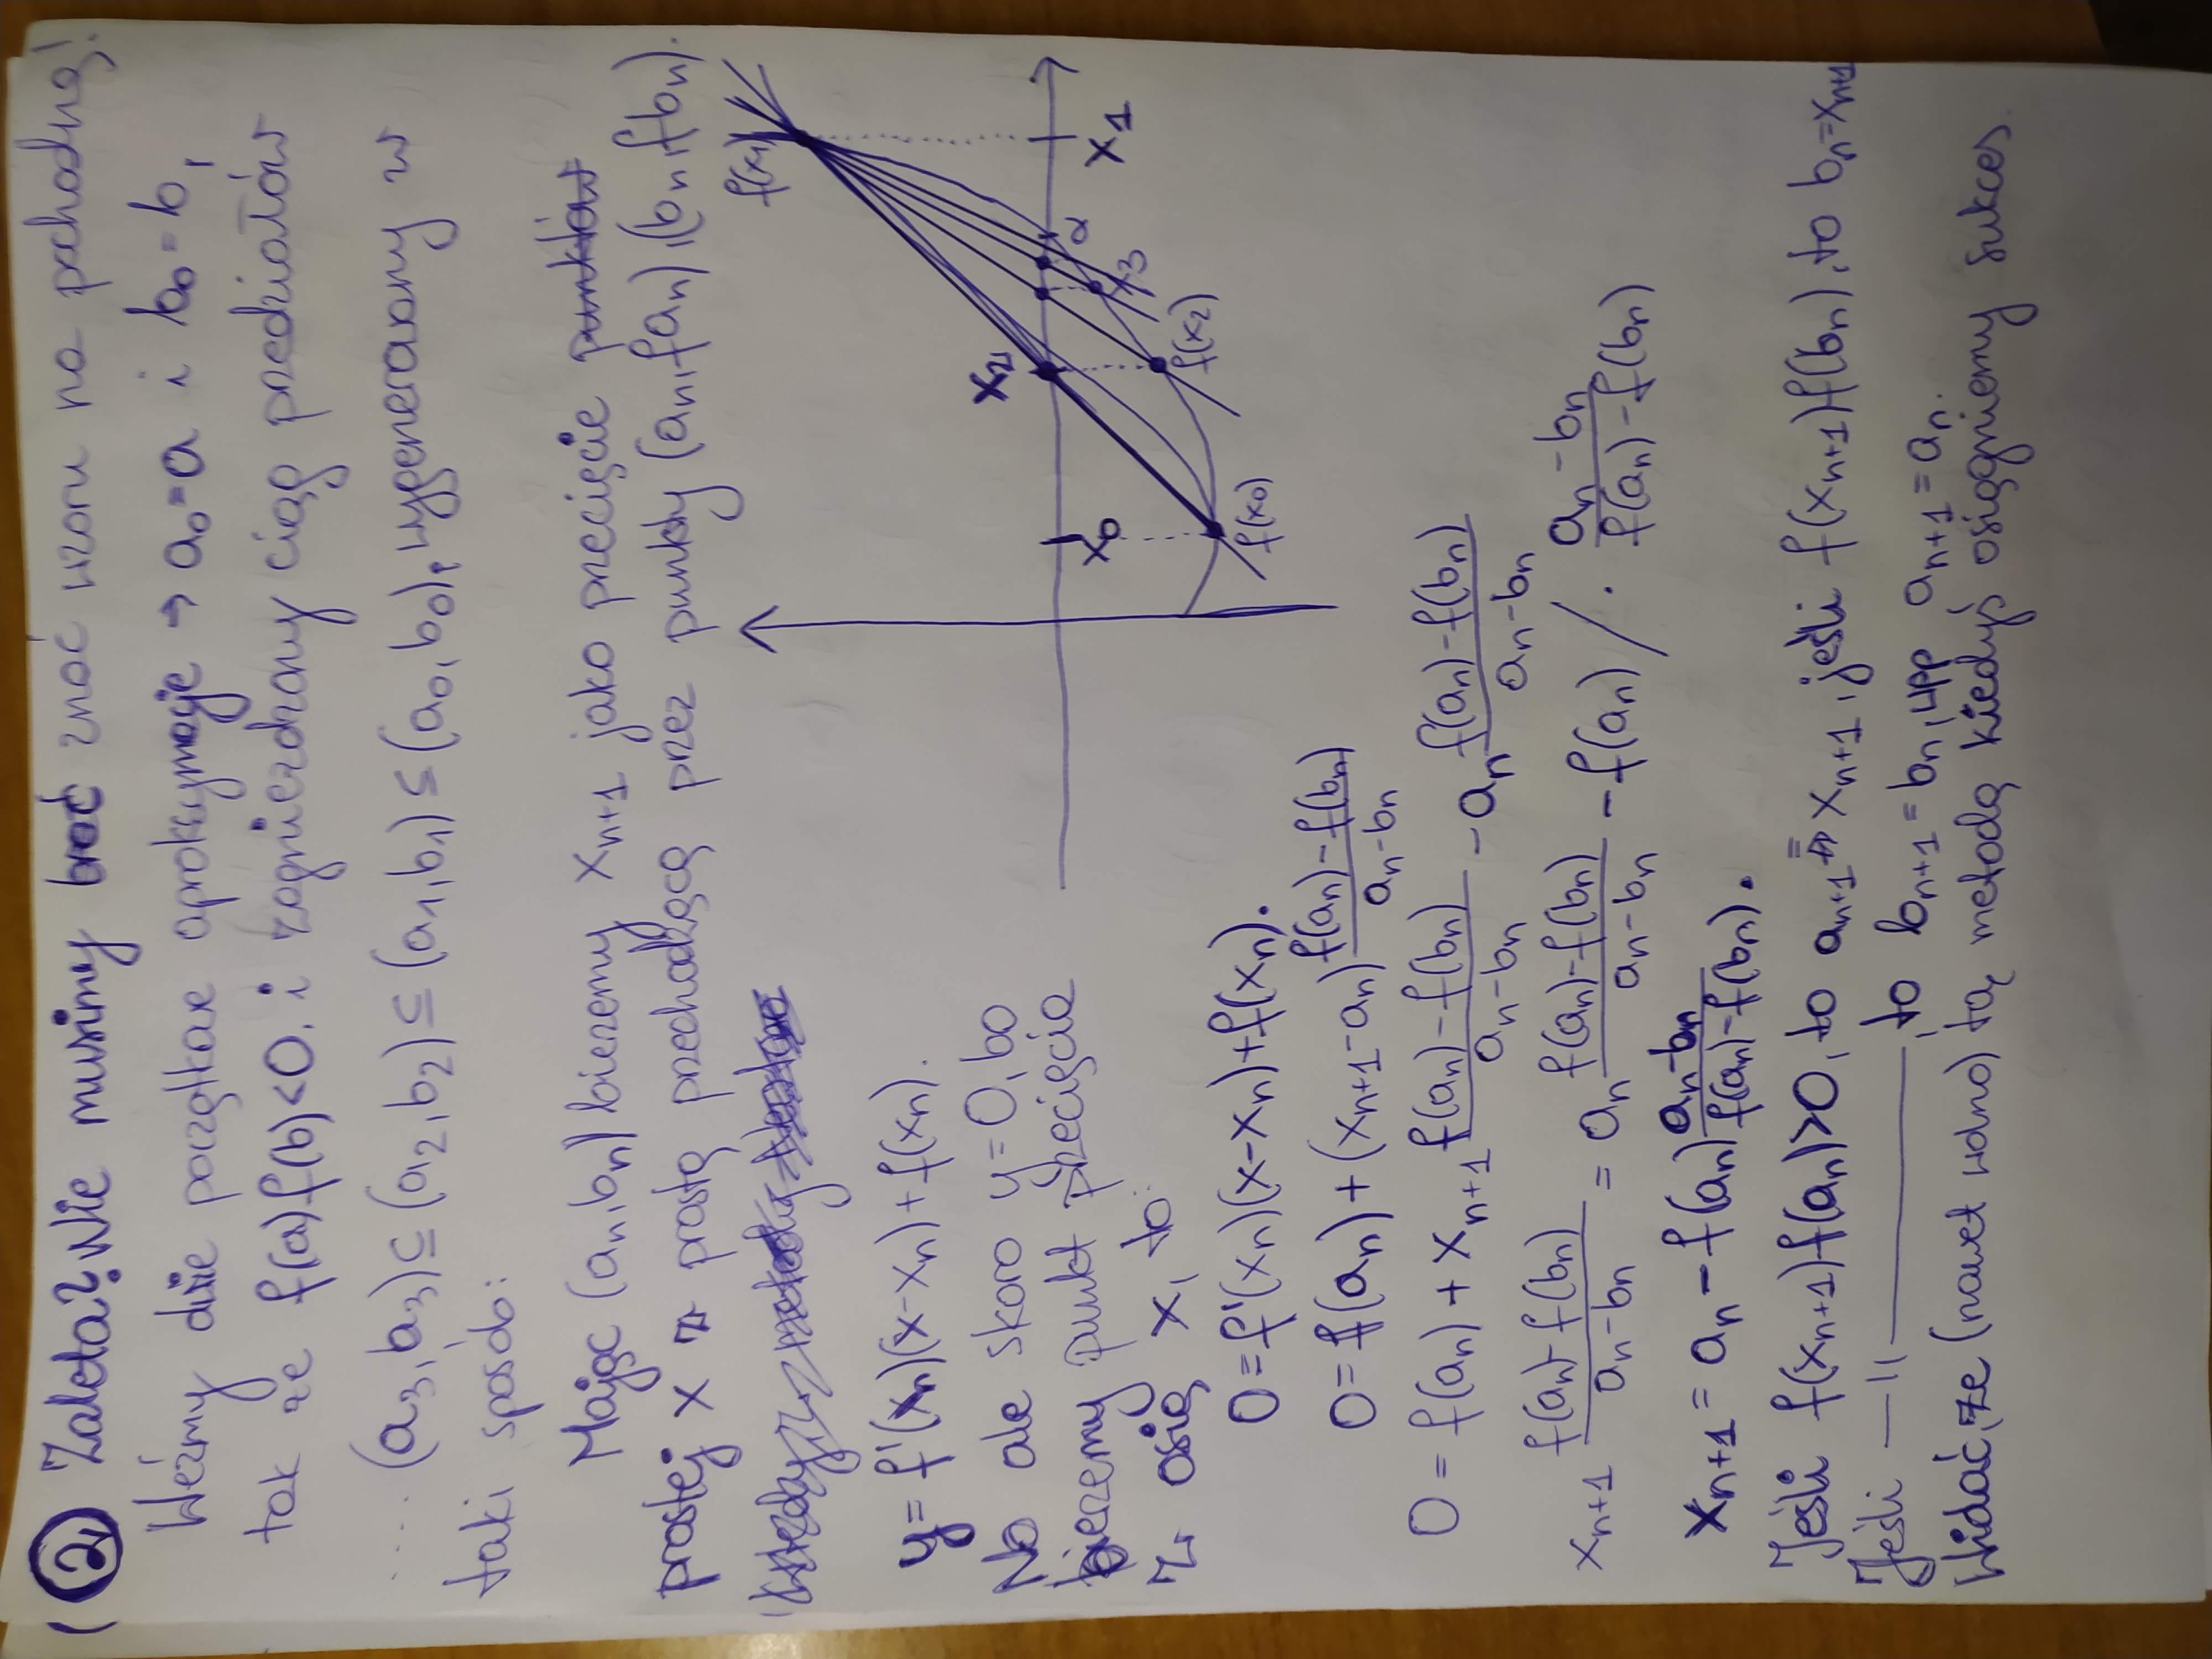 2. Zaleta? Nie musimy znać wzoru na pochodną!
Weźmy dwie początkowe aproksymacje → a₀=a i b₀=b,
tak że f(a)f(b)<0. i zagnieżdżony ciąg przedziałów
.... (a₃,b₃)⊆(a₂,b₂)⊆(a₁,b₁)⊆(a₀,b₀), wygenerowany w
taki sposób:
Mając (aₙ,bₙ) bierzemy xₙ₊₁ jako przecięcie punktów
prostej x z prostą przechodzącą przez punkty (aₙ,faₙ),(bₙ,fbₙ).
y=f'(xₙ)(x-xₙ)+f(xₙ).
No ale skoro y=0, bo
bierzemy punkt przecięcia
z osią x, to:
f(x₁)
x₂
x₀
α
x₁
x₃
f(x₂)
f(x₀)
0=f'(xₙ)(x-xₙ)+f(xₙ).
0=f(aₙ)+(xₙ₊₁-aₙ)(f(aₙ)-f(bₙ))/(aₙ-bₙ)
0=f(aₙ)+xₙ₊₁ (f(aₙ)-f(bₙ))/(aₙ-bₙ) - aₙ (f(aₙ)-f(bₙ))/(aₙ-bₙ)
xₙ₊₁ (f(aₙ)-f(bₙ))/(aₙ-bₙ) = aₙ (f(aₙ)-f(bₙ))/(aₙ-bₙ) - f(aₙ) / · (aₙ-bₙ)/(f(aₙ)-f(bₙ))
xₙ₊₁ = aₙ - f(aₙ) (aₙ-bₙ)/(f(aₙ)-f(bₙ)).
Jeśli f(xₙ₊₁)f(aₙ)>0, to aₙ₊₁ = xₙ₊₁, jeśli f(xₙ₊₁)f(bₙ), to bₙ=xₙ₊₁
Jeśli —〃—, to bₙ₊₁=bₙ, wpp, aₙ₊₁=aₙ.
Widać, że (nawet wolno) tą metodą kiedyś osiągniemy sukces.